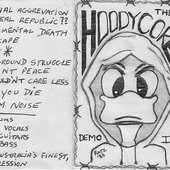 AL AGGREVATION
AL REPUBLIC??
MENTAL DEATH
CAPE
ROUND STRUGGLE
NT PEACE
ULDN'T CARE LESS
YOU DIE
M NOISE
UMS
VOCALS
GUITARS
BASS
AUSTRALIA'S FINEST,
RESSION
TH
HOODYCO
DEMO
I